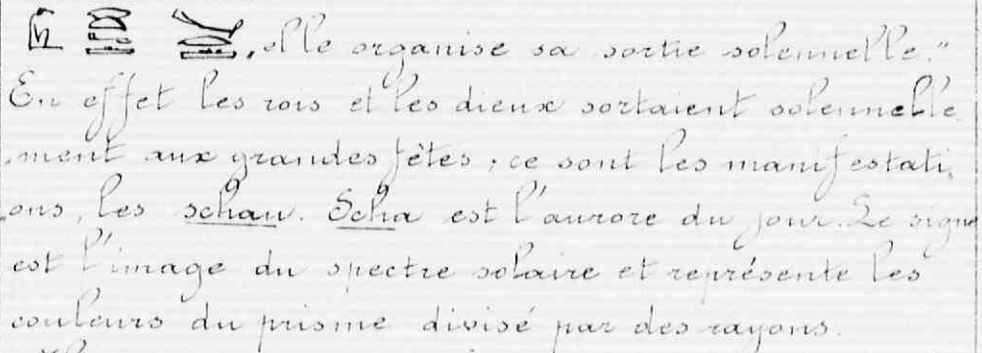 , elle organise sa sortie solennelle."
En effet les rois et les dieux sortaient solennelle
.ment aux grandes fêtes ; ce sont les manifestati.
.ons, les schau. Scha est l'aurore du jour. Le signe
est l'image du spectre solaire et représente les
couleurs du prisme divisé par des rayons.